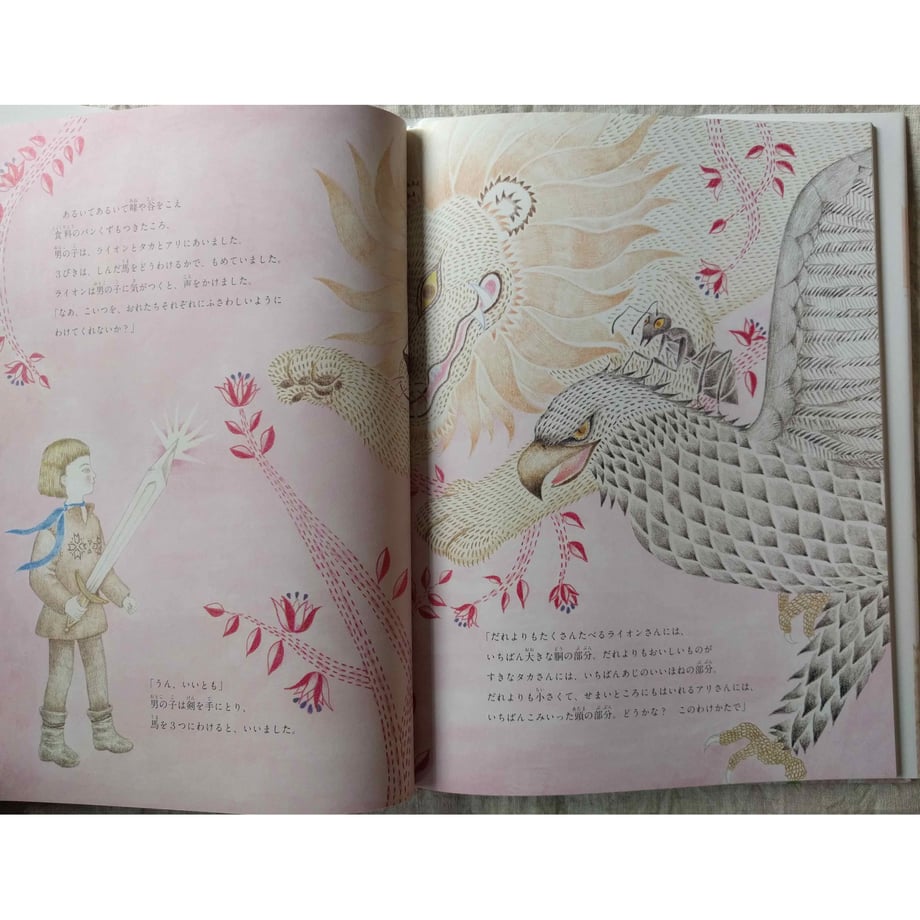 あるいてあるいて峰や谷をこえ
食料のパンくずもつきたころ、
男の子は、ライオンとタカとアリにあいました。
3びきは、しんだ馬をどうわけるかで、もめていました。
ライオンは男の子に気がつくと、声をかけました。
「なあ、こいつを、おれたちそれぞれにふさわしいように
わけてくれないか?」
「うん、いいとも」
男の子は剣を手にとり、
馬を3つにわけると、いいました。
「だれよりもたくさんたべるライオンさんには、
いちばん大きな胴の部分。だれよりもおいしいものが
すきなタカさんには、いちばんあじのいいほねの部分。
だれよりも小さくて、せまいところにもはいれるアリさんには、
いちばんこみいった頭の部分。どうかな? このわけかたで」